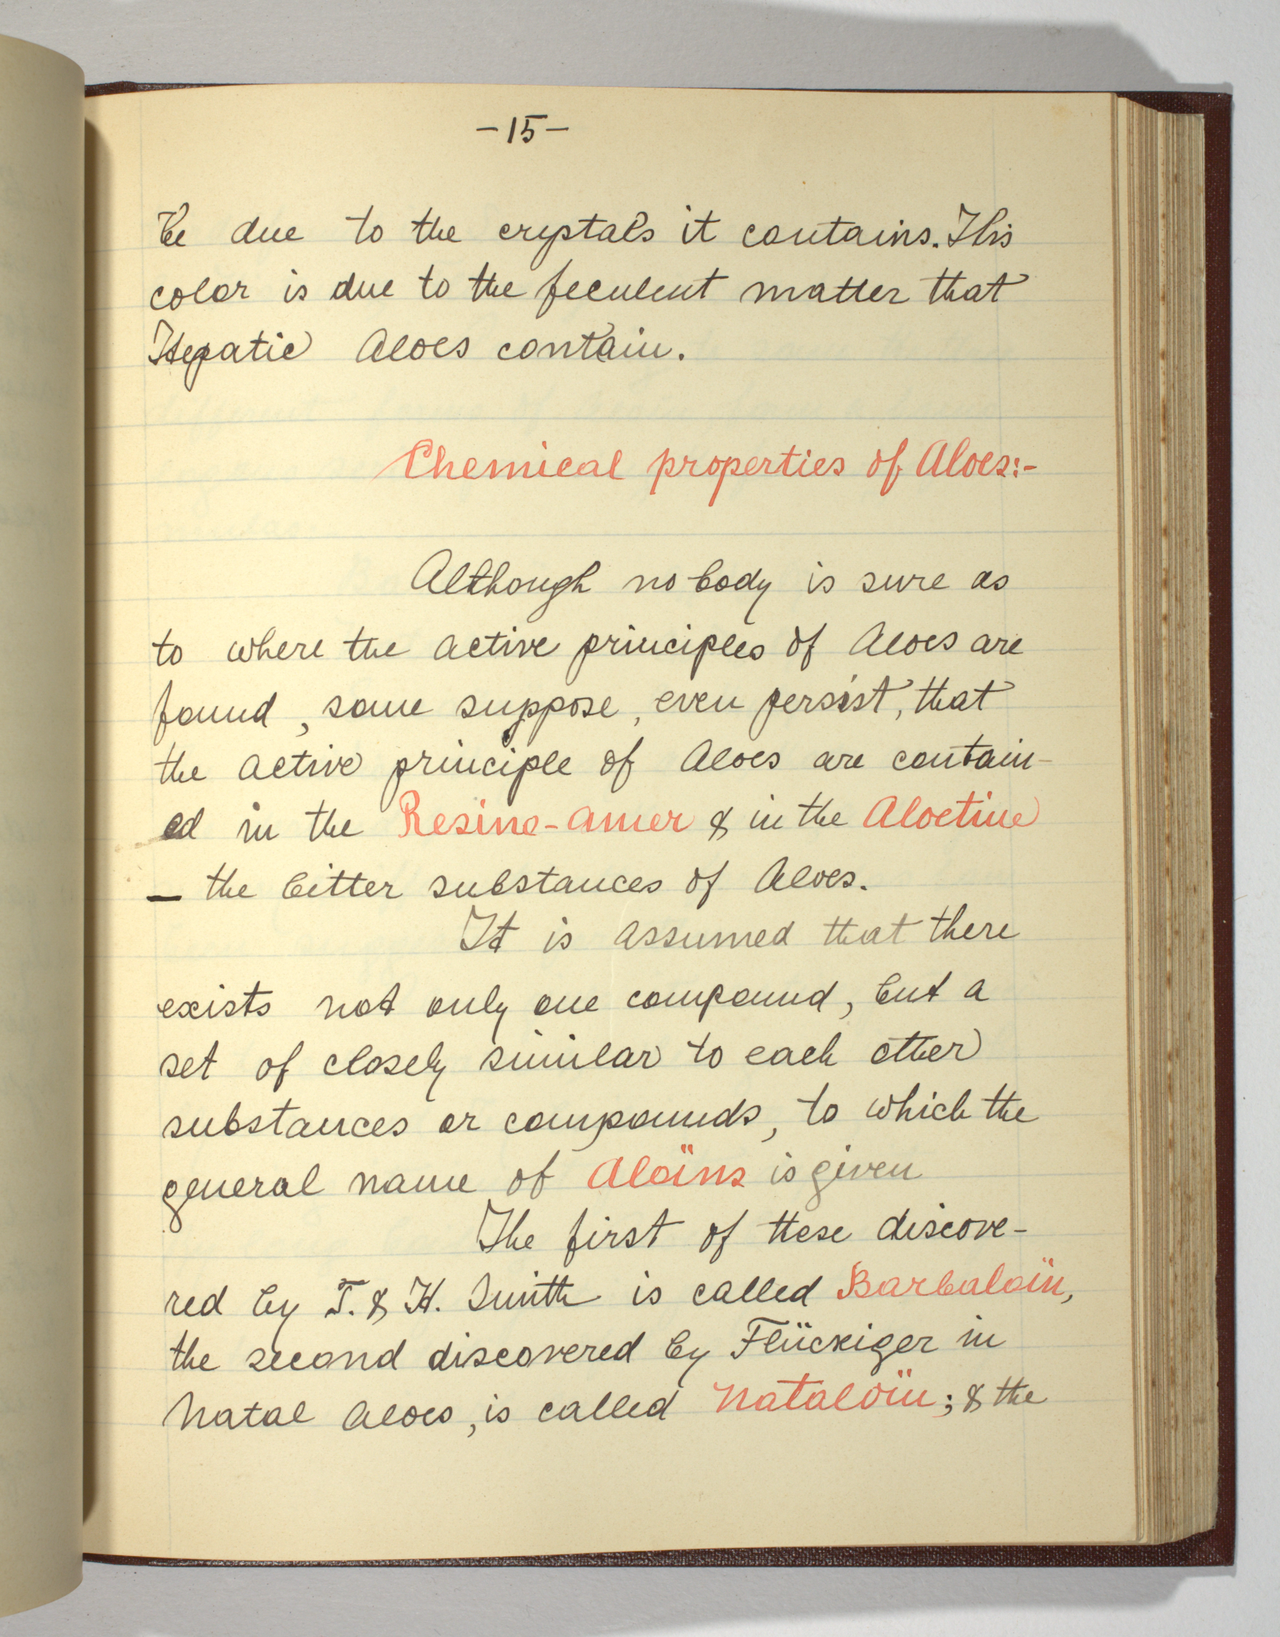 -15-
be due to the crystals it contains. This
color is due to the feculent matter that
Hepatic Aloes contain.
Chemical properties of Aloes:-
Although no body is sure as
to where the active principles of Aloes are
found, some suppose, even persist, that
the active principle of Aloes are contain-
ed in the Resine-amer & in the Aloetine
— the bitter substances of Aloes.
It is assumed that there
exists not only one compound, but a
set of closely similar to each other
substances or compounds, to which the
general name of Aloïns is given
The first of these discove-
red by T. & H. Smith is called Barbaloïn,
the second discovered by Flückiger in
Natal Aloes, is called Nataloïn; & the